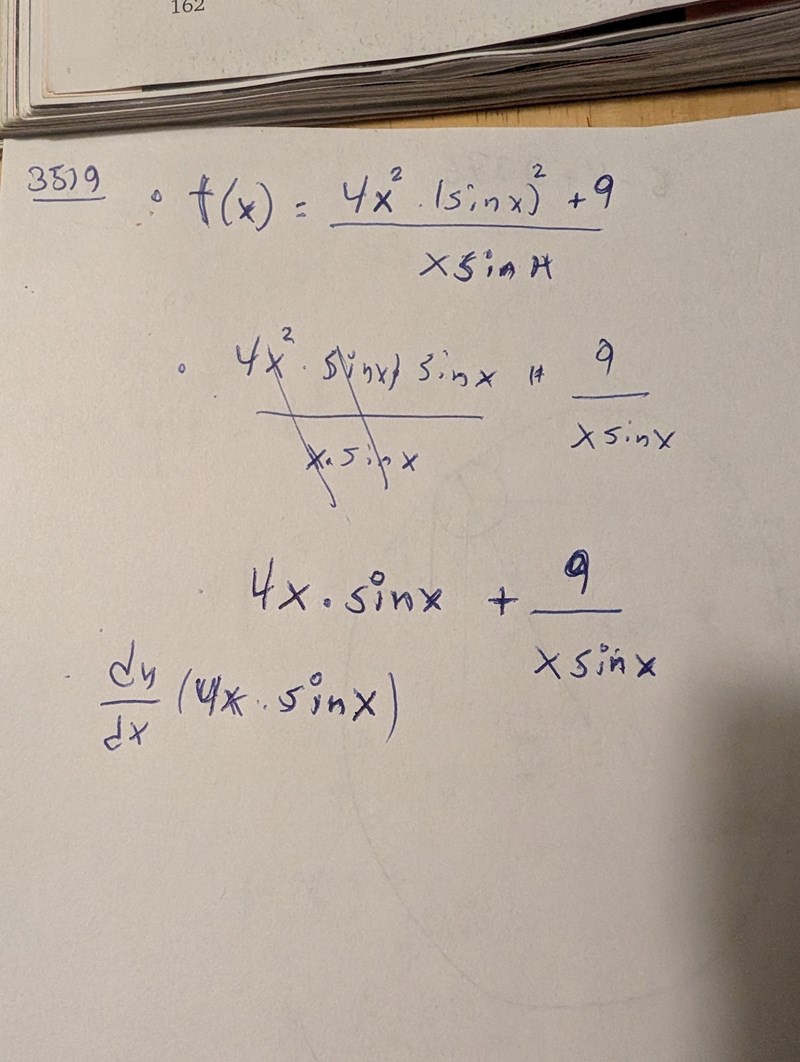 162
3519 • f(x) = (4x² · (sinx)² + 9) / (x sin x)
• (4x² · sinx) sinx) / (x · sinx) + 9 / (x sinx)
4x · sinx + 9 / (x sinx)
dy/dx (4x · sinx)